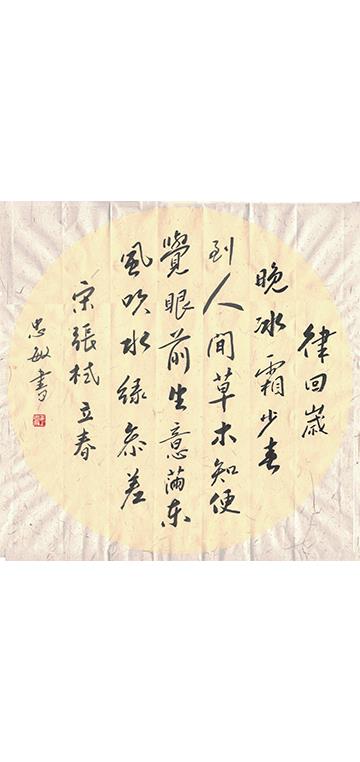 律回歲
晚冰霜少春
到人间草木知便
覺眼前生意滿东
風吹水绿参差
宋張栻立春
忠敏書